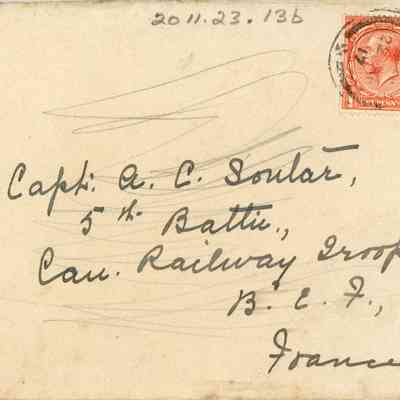 2011.23.13b
Capt. A. C. Soutar,
5th Battn.,
Can. Railway Troop
B. E. F.,
France